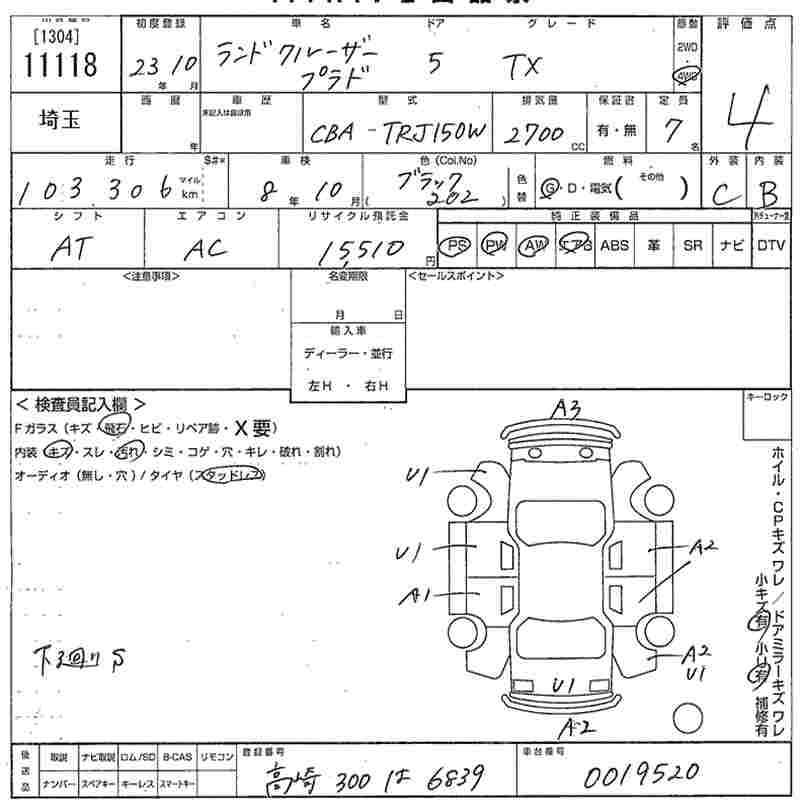 [1304]
11118
初度登録
23年10月
車名
ランドクルーザー
プラド
ドア
5
グレード
TX
駆動
2WD
4WD
評価点
4
埼玉
西暦
年
車歴
未記入は自家用
型式
CBA-TRJ150W
排気量
2700cc
保証書
有・無
定員
7名
走行
103,306
マイル
km
S#*
車検
8年10月
色(Col.No)
ブラック
( 202 )
色替
燃料
G・D・電気( その他 )
外装
C
内装
B
シフト
AT
エアコン
AC
リサイクル預託金
15,510円
純正装備品
PS PW AW エアB ABS 革 SR ナビ
DTV
<注意事項>
名変期限
月 日
輸入車
ディーラー・並行
左H・右H
<セールスポイント>
<検査員記入欄>
Fガラス(キズ・飛石・ヒビ・リペア跡・X要)
内装(キズ・スレ・汚れ・シミ・コゲ・穴・キレ・破れ・割れ)
オーディオ(無し・穴)/タイヤ(スタッドレス)
キーロック
A3
U1
U1
A2
A1
A2
U1
U1
A2
下回り S
ホイル・CPキズ ワレ/ドアミラーキズ ワレ
小キズ有 小U有 補修有
後送品
取説 ナビ取説 ロム/SD B-CAS リモコン
ナンバー スペアキー キーレス スマートキー
登録番号
高崎 300 は 6839
車台番号
0019520